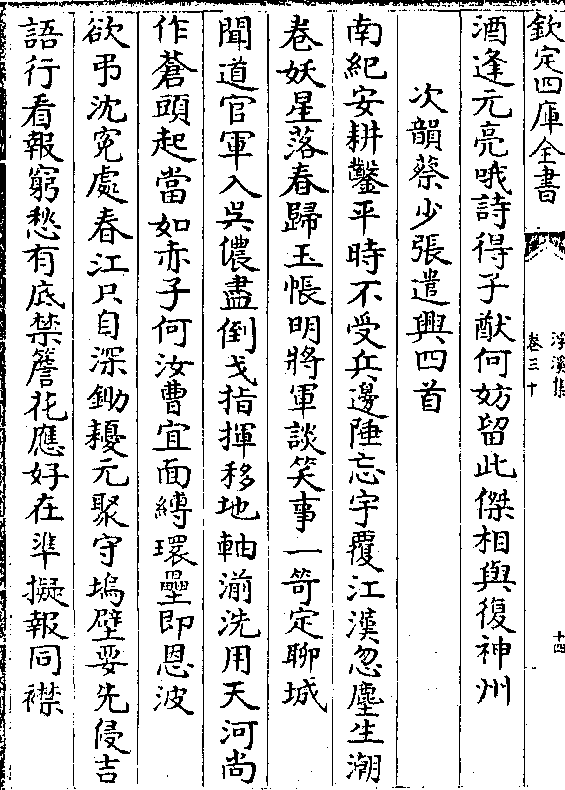 欽定四庫全書
浮溪集
卷三十
十四
酒逢元亮哦詩得子猷何妨留此傑相與復神州
次韻蔡少張遣興四首
南紀安耕鑿平時不受兵邊陲忘守覆江漢忽塵生潮
卷妖星落春歸玉帳明將軍談笑事一笴定聊城
聞道官軍入吳儂盡倒戈指揮移地軸湔洗用天河尚
作蒼頭起當如赤子何汝曹宜面縛環壘即恩波
欲弔沈寃處春江只自深鋤耰元聚守塢壁要先侵吉
語行看報窮愁有底禁簷花應好在準擬報同襟